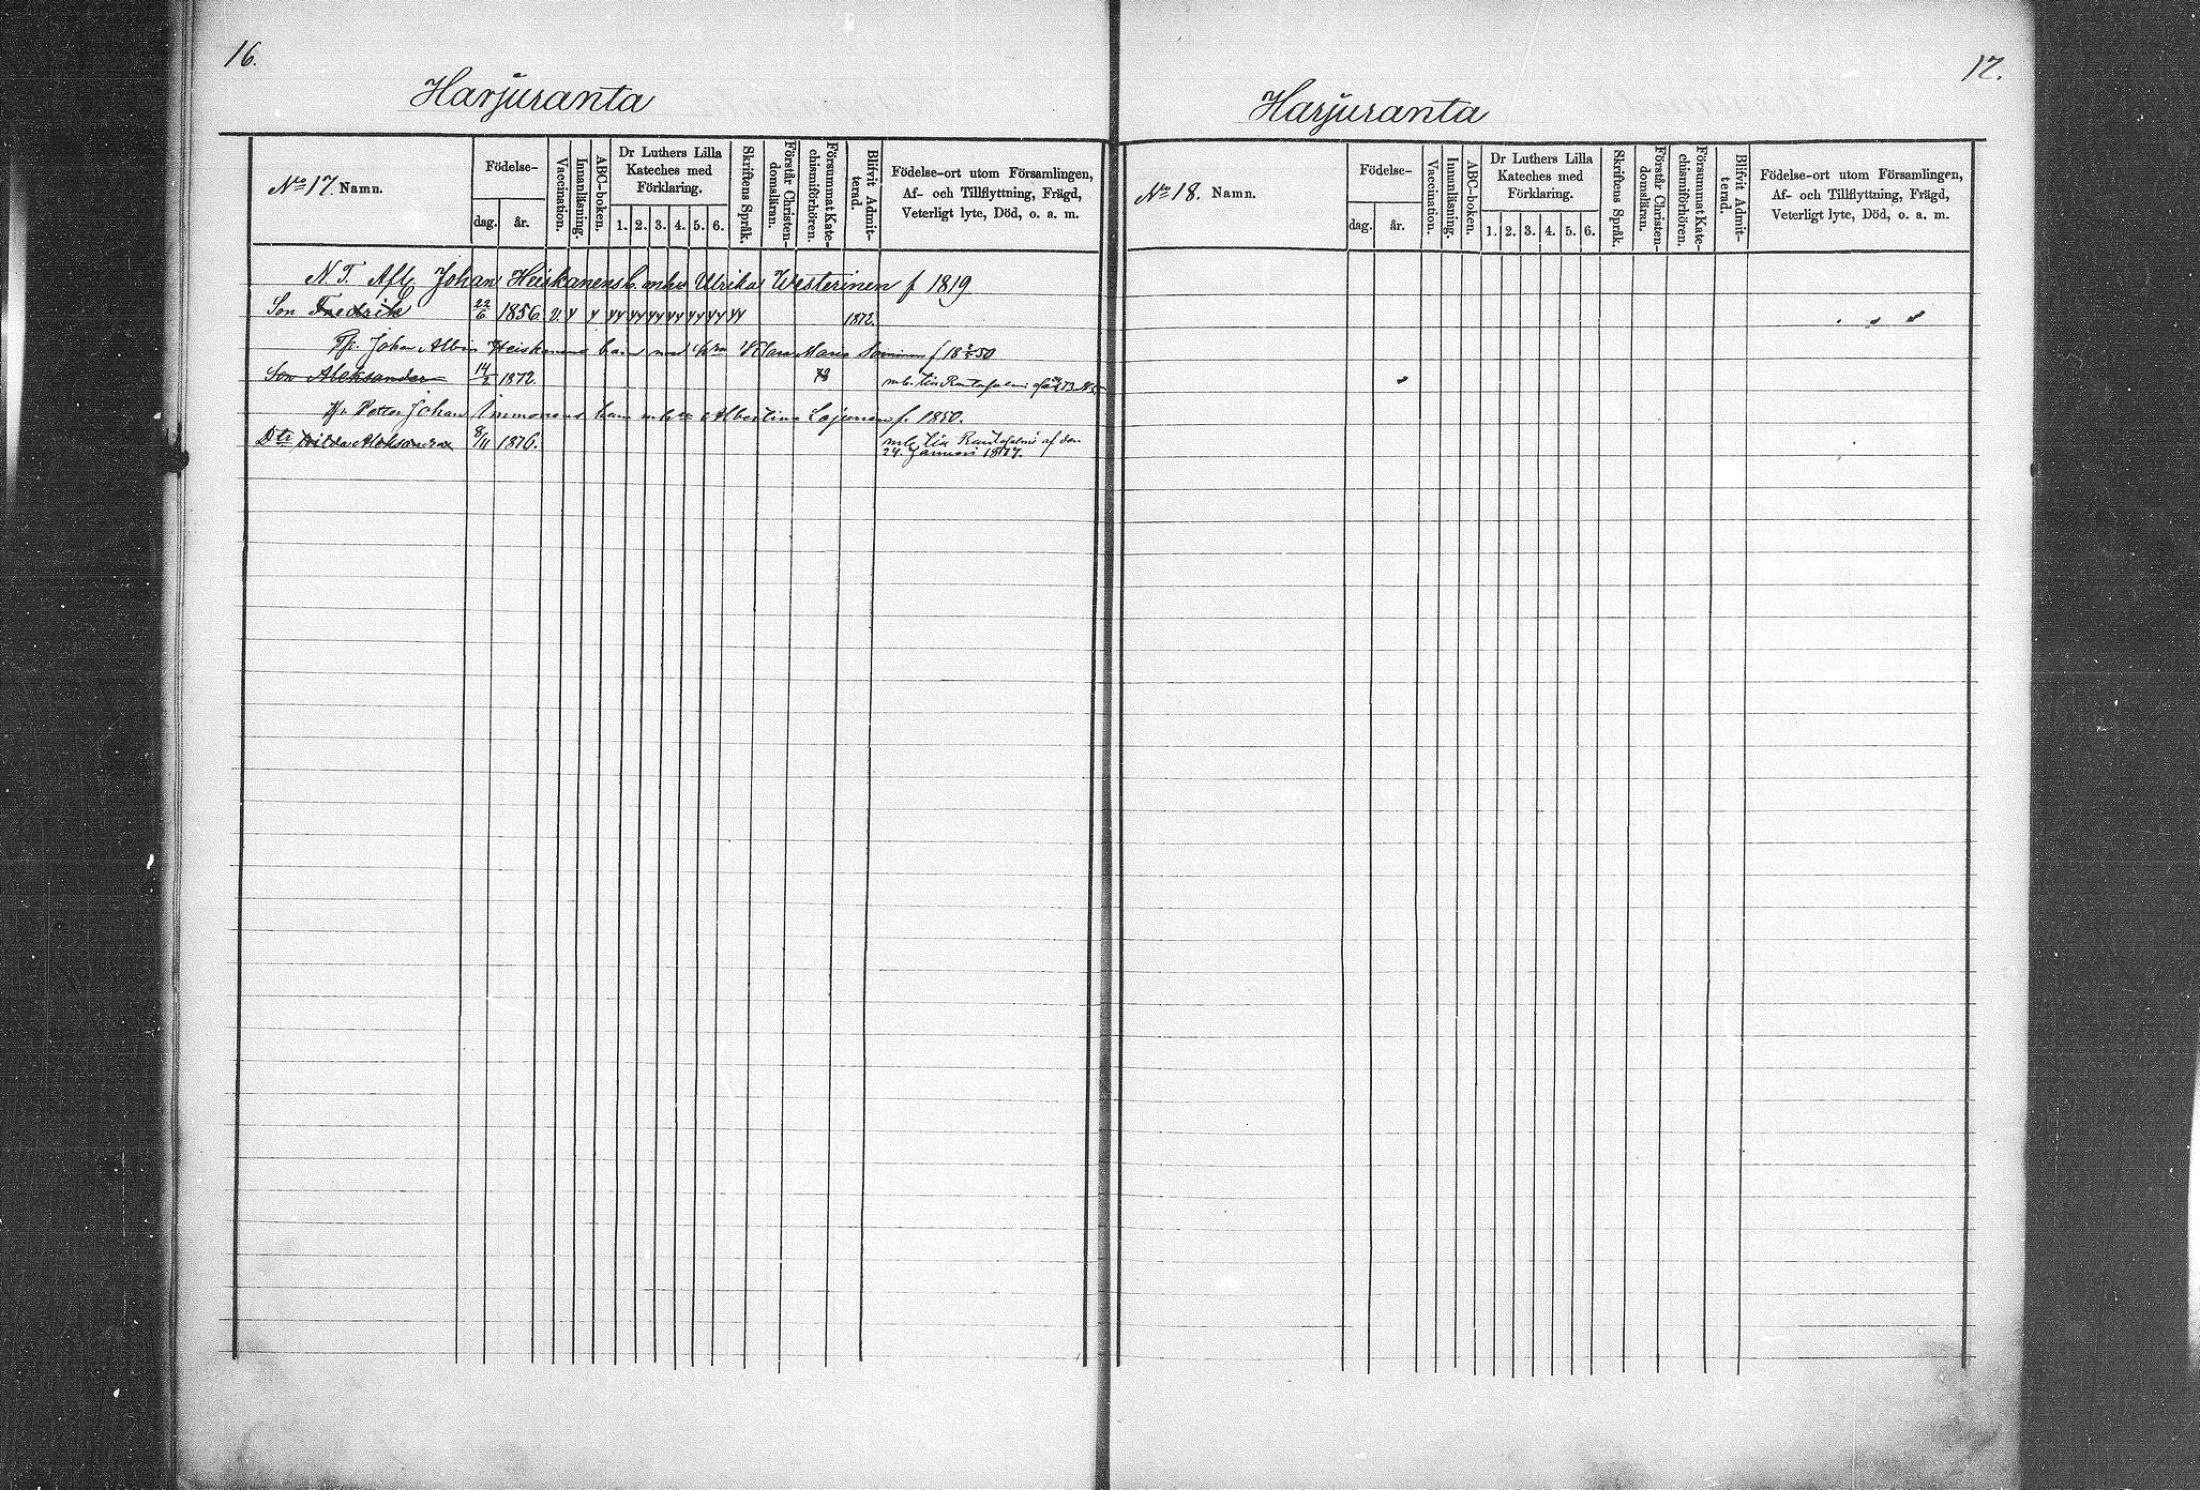 16.
Harjuranta
No 17. Namn.
Födelse-
dag. år.
Vaccination.
Innanläsning.
ABC-boken.
Dr Luthers Lilla
Kateches med
Förklaring.
1. 2. 3. 4. 5. 6.
Skriftens Språk.
Förstår Christen-
domsläran.
Försummat Kate-
chismiförhören.
Blifvit Admit-
terad.
Födelse-ort utom Församlingen,
Af- och Tillflyttning, Frägd,
Veterligt lyte, Död, o. a. m.
N. T. Afl. Johan Heiskanens b. m hu Ulrika Westerinen f 1819
Son Fredrik 22/6 1856 v. 1872.
Johan Albin Heiskanens barn med Klara Maria f 18 50
Son Aleksander 14/2 1872. mb. till Rantasalmi
Petter Johan Immonens barn Albertina f. 1850.
Dtr Hilda Aleksandra 8/11 1876. mb. till Rantasalmi af den
24. Januari 1877.
17.
Harjuranta
No 18. Namn.
Födelse-
dag. år.
Vaccination.
Innanläsning.
ABC-boken.
Dr Luthers Lilla
Kateches med
Förklaring.
1. 2. 3. 4. 5. 6.
Skriftens Språk.
Förstår Christen-
domsläran.
Försummat Kate-
chismiförhören.
Blifvit Admit-
terad.
Födelse-ort utom Församlingen,
Af- och Tillflyttning, Frägd,
Veterligt lyte, Död, o. a. m.